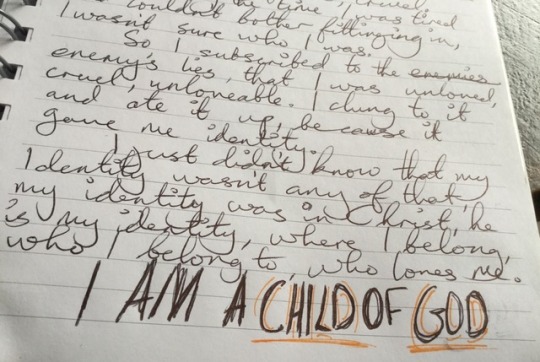 the time, I was cruel,
couldn't bother fittinging in, tired
I wasn't sure who I was.
So I subscribed to the enemies
enemy's lies, that I was unloved,
cruel, unloveable. I clung to it
and ate it up, because it
gave me identity.
I just didn't know that my
Identity wasn't any of that,
my identity was in Christ, he
is my identity, where I belong,
who I belong to who loves me.
I AM A CHILD OF GOD